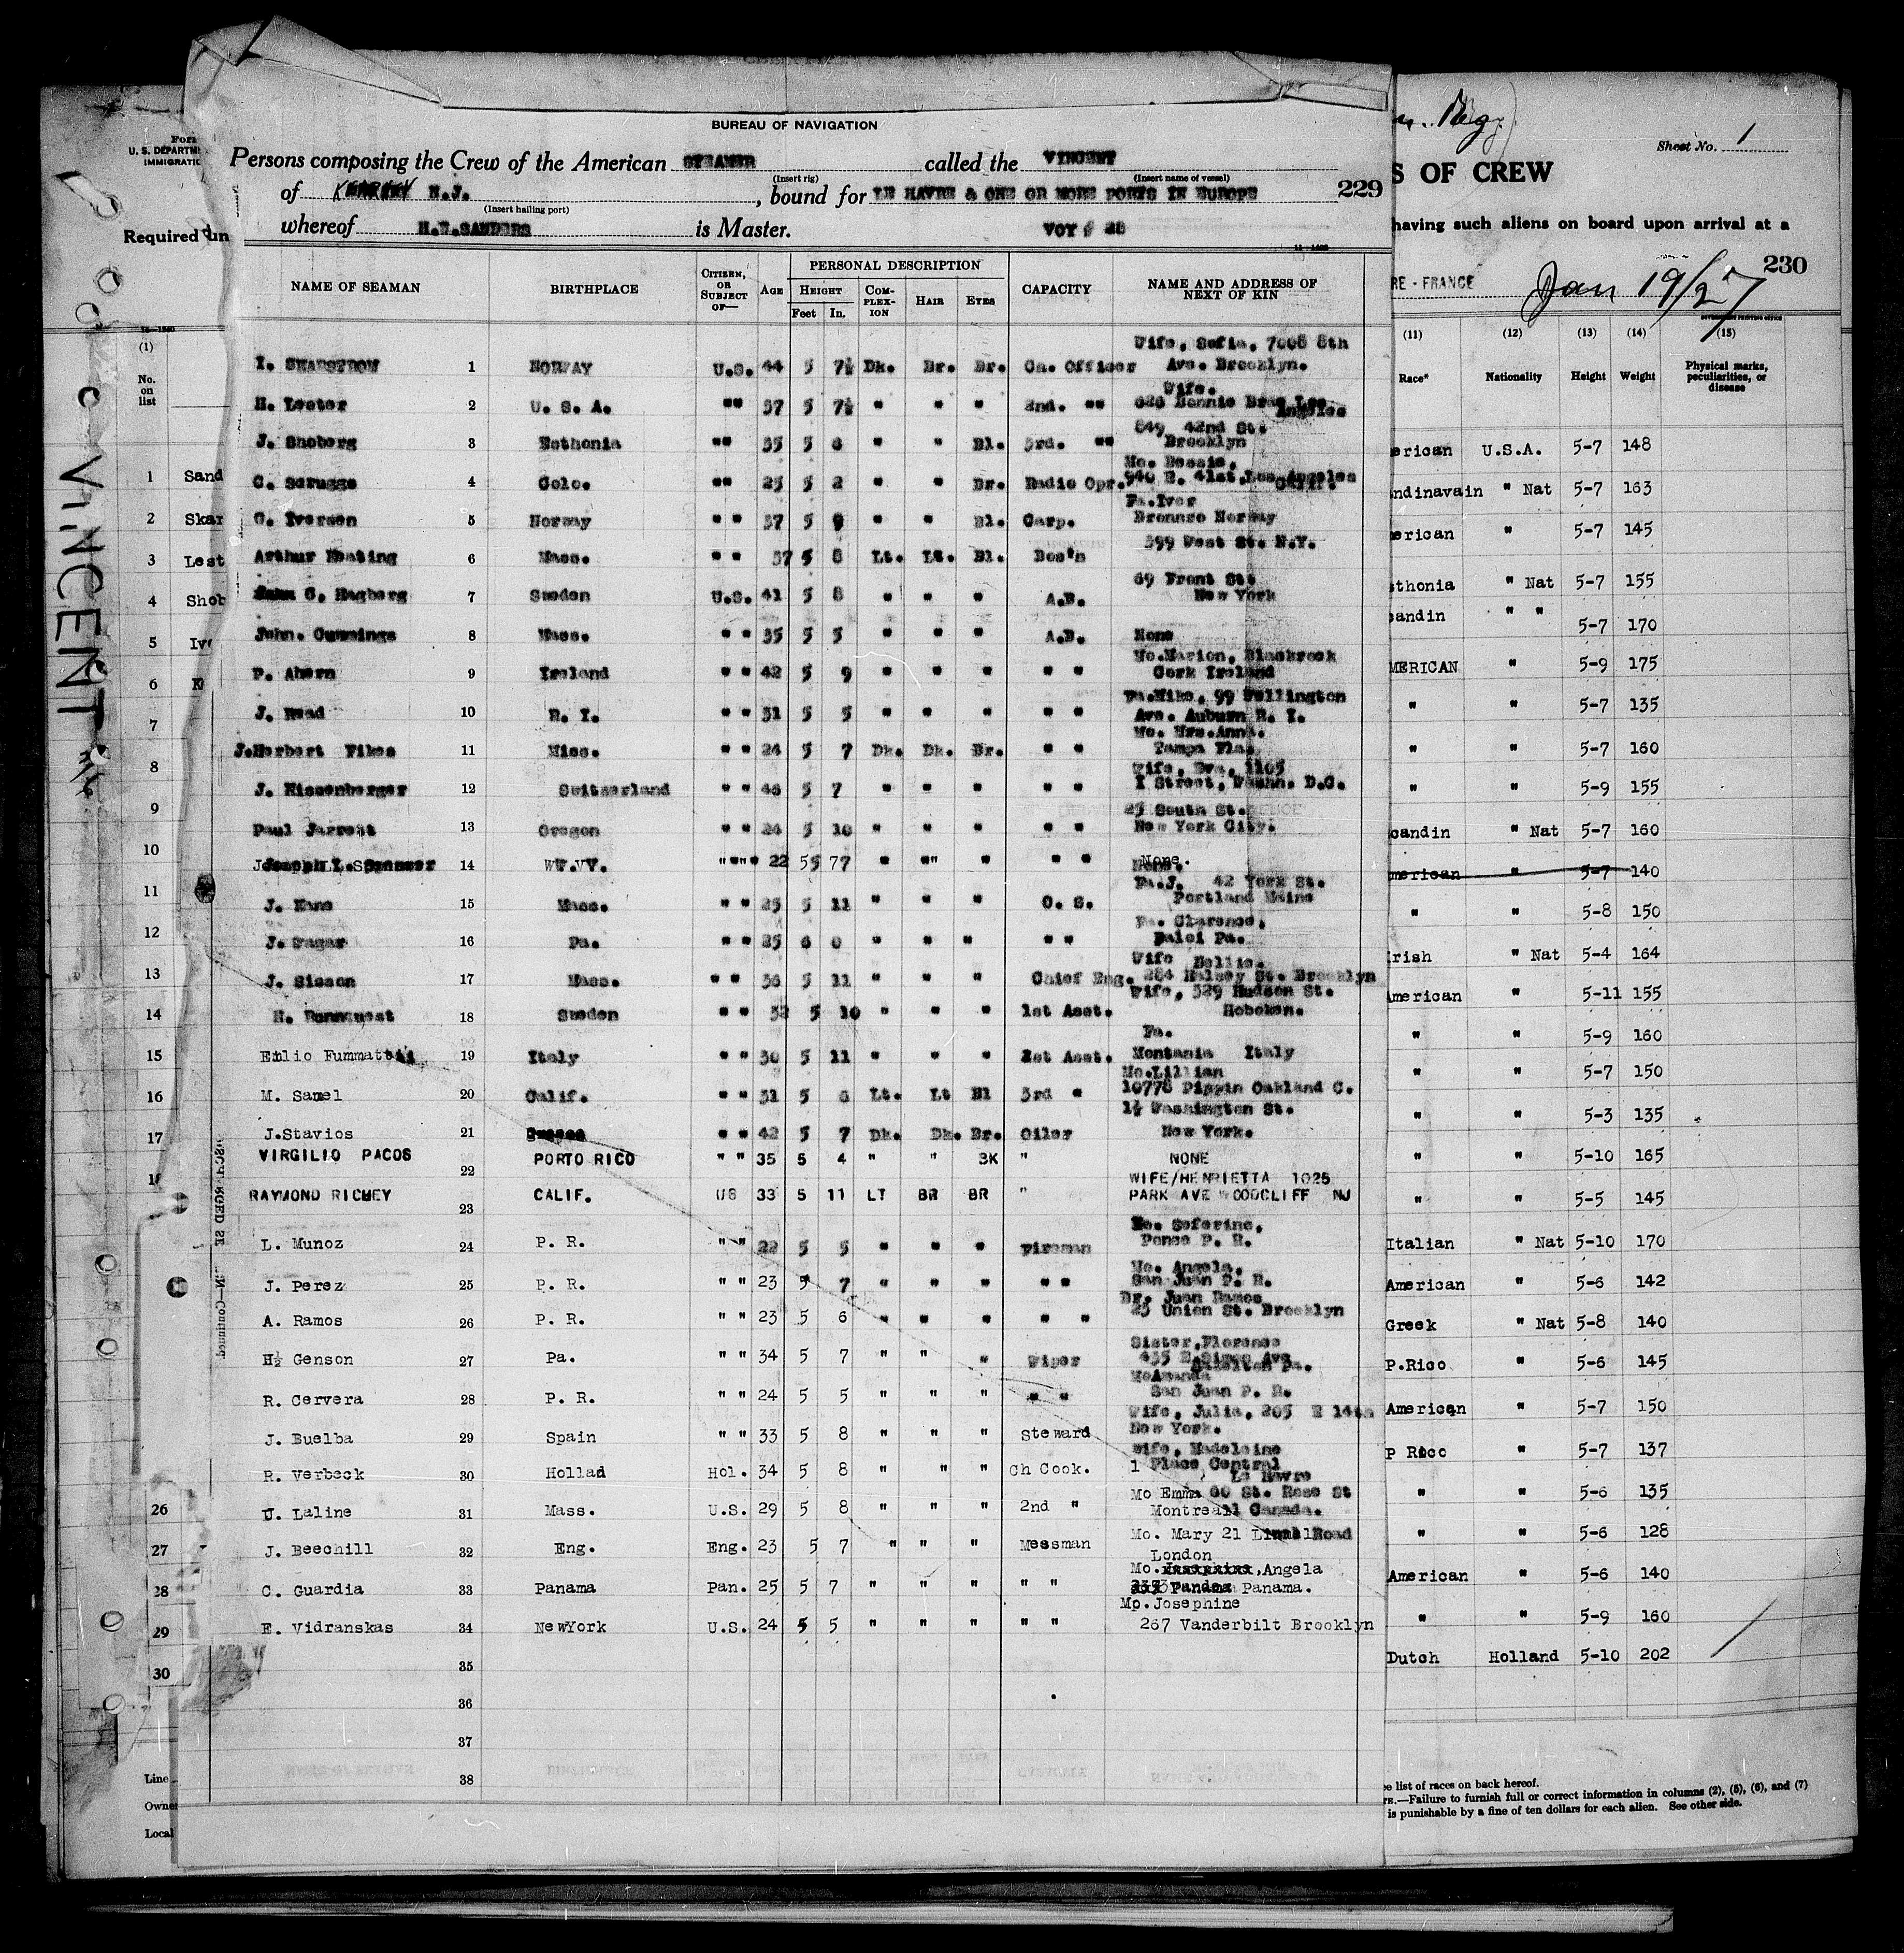 BUREAU OF NAVIGATION
Persons composing the Crew of the American STEAMER called the VINCENT
(Insert rig) (Insert name of vessel)
of KEARNY N.J. , bound for LE HAVRE & ONE OR MORE PORTS IN EUROPE 229
(Insert hailing port)
whereof H.W.SANDERS is Master. VOY # 28
NAME OF SEAMAN BIRTHPLACE CITIZEN, OR SUBJECT OF— AGE PERSONAL DESCRIPTION CAPACITY NAME AND ADDRESS OF NEXT OF KIN
HEIGHT COM-PLEX-ION HAIR EYES
Feet In.
Wife, Sofia, 7008 8th
I. SKARSTROM 1 NORWAY U.S. 44 5 7½ Dk. Br. Br. Ch. Officer Ave. Brooklyn.
Wife.
H. Lester 2 U. S. A. "" 37 5 7½ " " " 2nd. "" 628 Bonnie Brae Los Angeles
849 42nd St.
J. Shoberg 3 Esthonia "" 35 5 6 " " Bl. 3rd. "" Brooklyn
Mo. Bessie,
C. Scruggs 4 Colo. "" 25 5 2 " " Br. Radio Opr. 940 E. 41st.Los Angeles
Fa.Iver
G. Iversen 5 Norway " " 37 5 9 " " Bl. Carp. Bronnro Norway
399 West St. N.Y.
Arthur Keating 6 Mass. " " 37 5 8 Lt. Lt. Bl. Bos'n
69 Front St.
John G. Hagberg 7 Sweden U.S. 41 5 8 " " " A.B. New York
John. Cummings 8 Mass. " " 35 5 5 " " " A.B. None
Mo.Marion, Blackrock
P. Ahern 9 Ireland " " 42 5 9 " " " " " Cork Ireland
Fa.Mike, 99 Wellington
J. Head 10 R. I. " " 31 5 5 " " " " " Ave. Auburn R. I.
Mo. Mrs.Anna.
J.Herbert Fikes 11 Miss. " " 24 5 7 Dk. Dk. Br. " " Tampa Fla.
Wife, Eva, 1105
J. Rissenberger 12 Switzerland " " 46 5 7 " " " " " I Street, Washn. D.C.
25 South St.
Paul Jarrett 13 Oregon " " 24 5 10 " " " " " New York City.
Joseph L. 14 W.V. " " 22 5 7 " " " " " None.
Fa.J. 42 York St.
J. Kane 15 Mass. " " 25 5 11 " " " O. S. Portland Maine
Fa. Clarence,
J. 16 Pa. " " 25 6 0 " " " " " Pa.
Wife Nellie.
J. Sisson 17 Mass. " " 36 5 11 " " " Chief Eng. 284 Halsey St. Brooklyn
Wife, 329 Hudson St.
H. Runnquest 18 Sweden " " 32 5 10 " " " 1st Asst. Hoboken.
Fa.
Emlio 19 Italy " " 30 5 11 " " " 2st Asst. Montania Italy
Mo.Lillian
M. Samel 20 Calif. " " 31 5 6 Lt. Lt Bl 3rd " 10778 Pippin Oakland C.
1½ Washington St.
J.Stavios 21 Greece " " 42 5 7 Dk. Dk. Br. Oiler New York.
VIRGILIO PACOS 22 PORTO RICO " " 35 5 4 " " BK " NONE
WIFE/HENRIETTA 1025
RAYMOND RICHEY 23 CALIF. US 33 5 11 LT BR BR " PARK AVE WOODCLIFF NJ
Mo. Seferina.
L. Munoz 24 P. R. " " 22 5 5 " " " Fireman Ponce P. R.
Mo. Angela.
J. Perez 25 P. R. " " 23 5 7 " " " " " San Juan P. R.
Br. Juan Ramos
A. Ramos 26 P. R. " " 23 5 6 " " " " " 25 Union St. Brooklyn
Sister,Florence
H½ Genson 27 Pa. " " 34 5 7 " " " Wiper 435 Ave Pa.
MoAmanda
R. Cervera 28 P. R. " " 24 5 5 " " " " " San Juan P. R.
Wife, Julia, 205 E 14th
J. Buelba 29 Spain " " 33 5 8 " " " Steward New York.
Wife, Madeleine
R. Verbeck 30 Hollad Hol. 34 5 8 " " " Ch Cook. 1 Place Central
Le Havre
Mo Emma 60 St. Rose St
U. Laline 31 Mass. U.S. 29 5 8 " " " 2nd " Montreall Canada.
Mo. Mary 21 Road
J. Beechill 32 Eng. Eng. 23 5 7 " " " Messman London
Mo. ,Angela
C. Guardia 33 Panama Pan. 25 5 7 " " " " " Panama.
Mo.Josephine
E. Vidranskas 34 NewYork U.S. 24 5 5 " " " " " 267 Vanderbilt Brooklyn
35
36
37
38
Form
U. S. DEPARTM
IMMIGRATIO
Required un
VINCENT
(1)
No. on list
1 Sand
2 Skar
3 Lest
4 Shob
5 Iv
6 K
7
8
9
10
11
12
13
14
15
16
17
26
27
28
29
30
Line
Owner
Local
Sheet No. 1
S OF CREW
having such aliens on board upon arrival at a
230
RE - FRANCE Jan 19/27
(11) (12) (13) (14) (15)
Race* Nationality Height Weight Physical marks, peculiarities, or disease
erican U.S.A. 5-7 148
ndinavain " Nat 5-7 163
erican " 5-7 145
sthonia " Nat 5-7 155
candin " " 5-7 170
MERICAN " 5-9 175
" " 5-7 135
" " 5-7 160
" " 5-9 155
candin " Nat 5-7 160
merican " 5-7 140
" " 5-8 150
Irish " Nat 5-4 164
American " 5-11 155
" " 5-9 160
" " 5-7 150
" " 5-3 135
" " 5-10 165
" " 5-5 145
Italian " Nat 5-10 170
American " 5-6 142
Greek " Nat 5-8 140
P.Rico " 5-6 145
American " 5-7 150
P Rico " 5-7 137
" " 5-6 135
" " 5-6 128
American " 5-6 140
" " 5-9 160
Dutch Holland 5-10 202
e list of races on back hereof.
TE.—Failure to furnish full or correct information in columns (2), (5), (6), and (7)
is punishable by a fine of ten dollars for each alien. See other side.